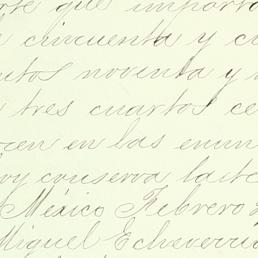 rte que importa
cincuenta y c
ntos noventa y
tres cuartos ce
cen en las enun
oy conserva la tc
México Febrero 2
Miguel Echeverri